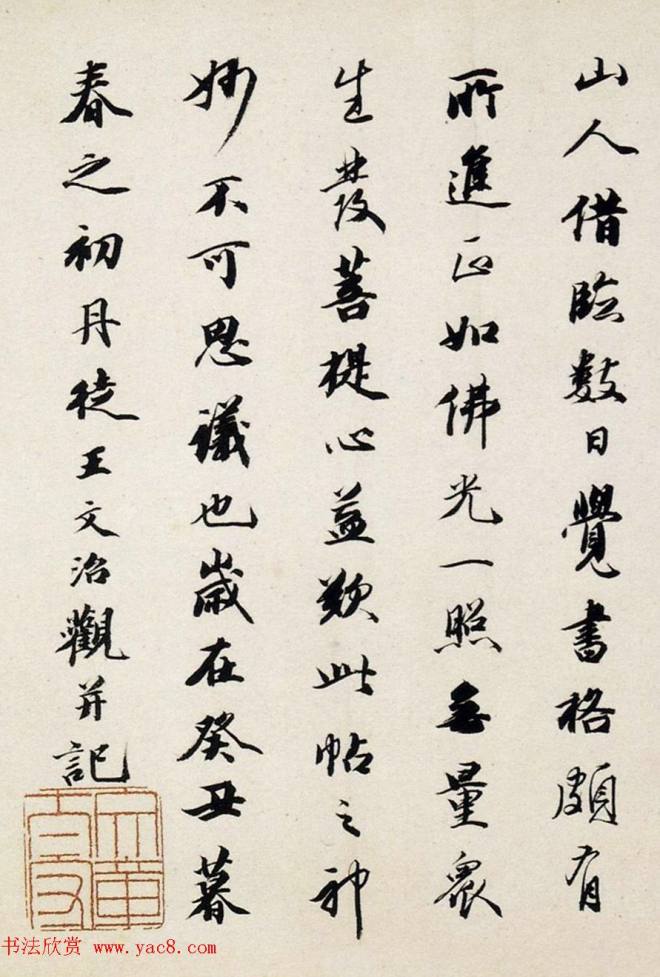 山人借臨數日覺書格頗有
所進正如佛光一照無量衆
生發菩提心益歎此帖之神
妙不可思議也歲在癸丑暮
春之初丹徒王文治觀并記
书法欣赏 www.yac8.com